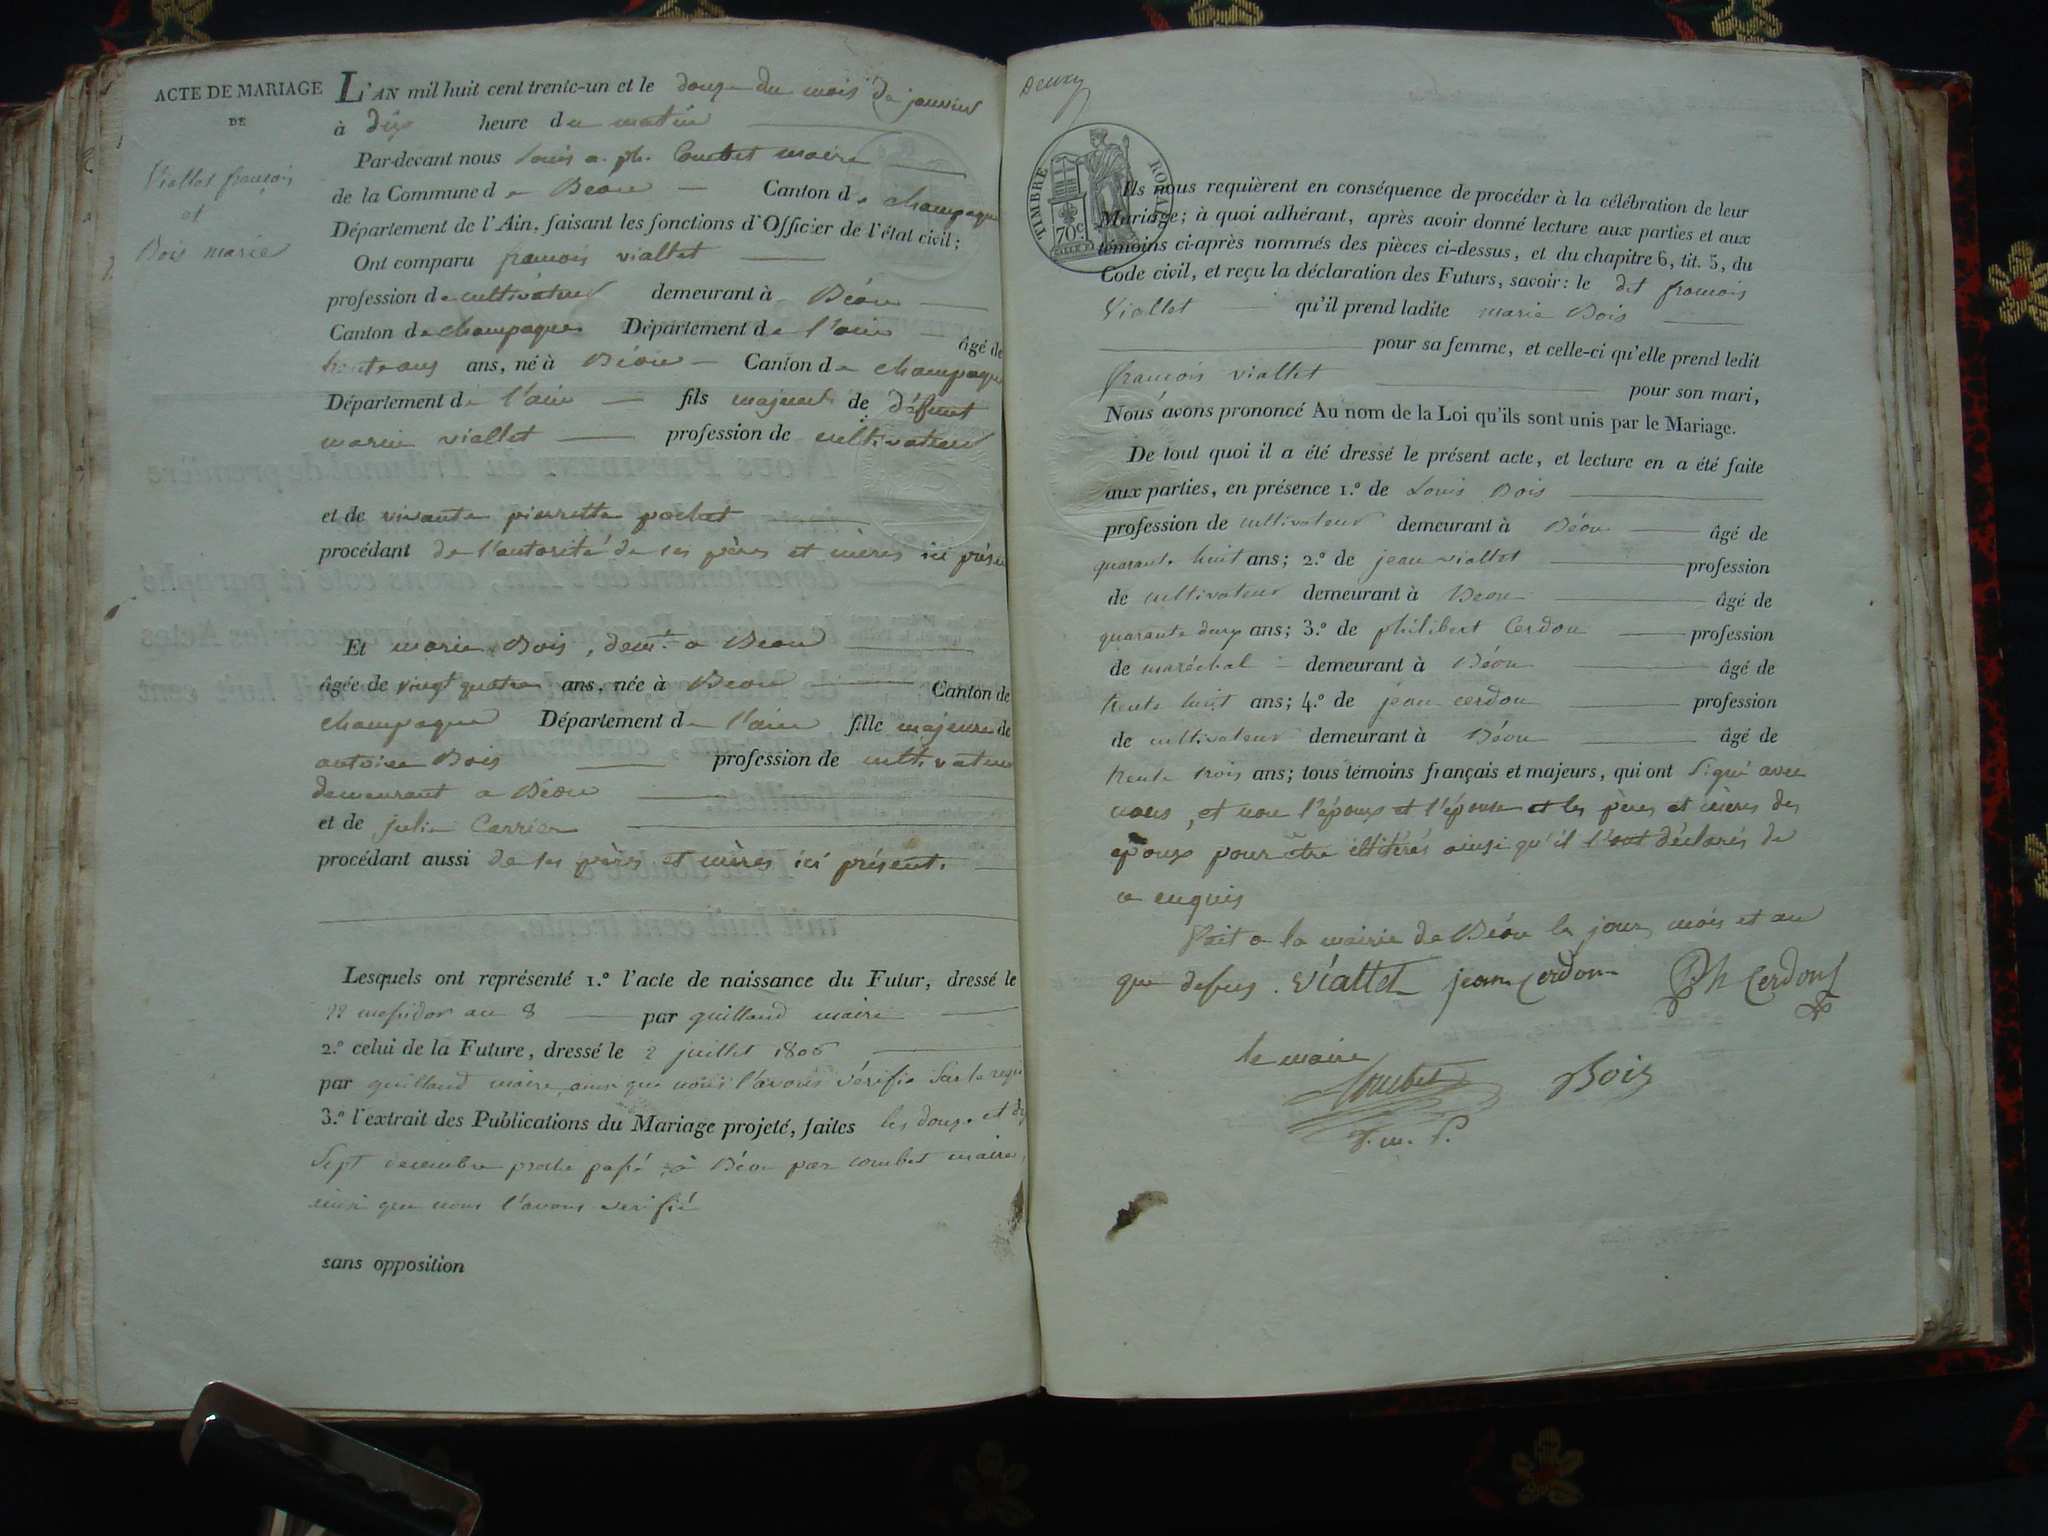 ACTE DE MARIAGE
DE
Viallet françois
et
Bois marie
L'AN mil huit cent trente-un et le douze du mois de janvier
à dix heure du matin
Par-devant nous Louis a. ph. Combet maire
de la Commune de Béon Canton de champagne
Département de l'Ain, faisant les fonctions d'Officier de l'état civil;
Ont comparu françois viallet
profession de cultivateur demeurant à Béon
Canton de champagne Département de l'ain âgé de
trente ans ans, né à Béon Canton de champagne
Département de l'ain fils majeur de défunt
marin viallet profession de cultivateur
et de vivante pierrette pochet
procédant de l'autorité de ses pères et mères ici présen
Et marie Bois, demt. a Beon
âgée de vingt quatre ans, née à Beon Canton de
champagne Département de l'ain fille majeure de
antoine Bois profession de cultivateur
demeurant a Béon
et de julie Carrier
procédant aussi de ses pères et mères ici présent.
Lesquels ont représenté 1.º l'acte de naissance du Futur, dressé le
22 messidor an 8 par guilland maire
2.º celui de la Future, dressé le 2 juillet 1806
par guilland maire ainsi que nous l'avons vérifié sur le regi
3.º l'extrait des Publications du Mariage projeté, faites les douze et dix
sept decembre proche passé, à Béon par combet maire,
ainsi que nous l'avons verifié
sans opposition
TIMBRE ROYAL
70c.
Ils nous requièrent en conséquence de procéder à la célébration de leur
Mariage; à quoi adhérant, après avoir donné lecture aux parties et aux
témoins ci-après nommés des pièces ci-dessus, et du chapitre 6, tit. 5, du
Code civil, et reçu la déclaration des Futurs, savoir: le dit francois
Viallet qu'il prend ladite marie Bois
pour sa femme, et celle-ci qu'elle prend ledit
francois viallet pour son mari,
Nous avons prononcé Au nom de la Loi qu'ils sont unis par le Mariage.
De tout quoi il a été dressé le présent acte, et lecture en a été faite
aux parties, en présence 1.º de Louis Bois
profession de cultivateur demeurant à Béon âgé de
quarante huit ans; 2.º de jean viallet profession
de cultivateur demeurant à Beon âgé de
quarante deux ans; 3.º de philibert Cerdon profession
de maréchal demeurant à Béon âgé de
trente huit ans; 4.º de jean cerdon profession
de cultivateur demeurant à Béon âgé de
trente trois ans; tous témoins français et majeurs, qui ont signé avec
nous, et non l'époux et l'épouse et les pères et mères des
epoux pour être illitérés ainsi qu'il l'ont déclarés de
ce enquis
Fait a la mairie de Béon les jour, mois et an
que dessus. Viallet jean cerdon Ph Cerdon
le maire
Combet Bois